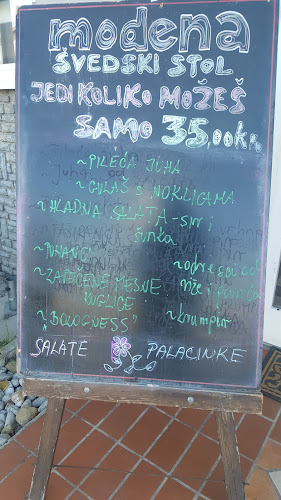 modena
ŠVEDSKI STOL
JEDI KOLIKO MOŽEŠ
SAMO 35,00kn
~PILEĆA JUHA
~GULAŠ S NOKLICAMA
~HLADNA SALATA - sir i
šunka
~POHANCI
~ZAPEČENE MESNE
KUGLICE
~"BOLOGNESS"
~odresci od
riže i povrća
~krumpir
SALATE
PALAČINKE